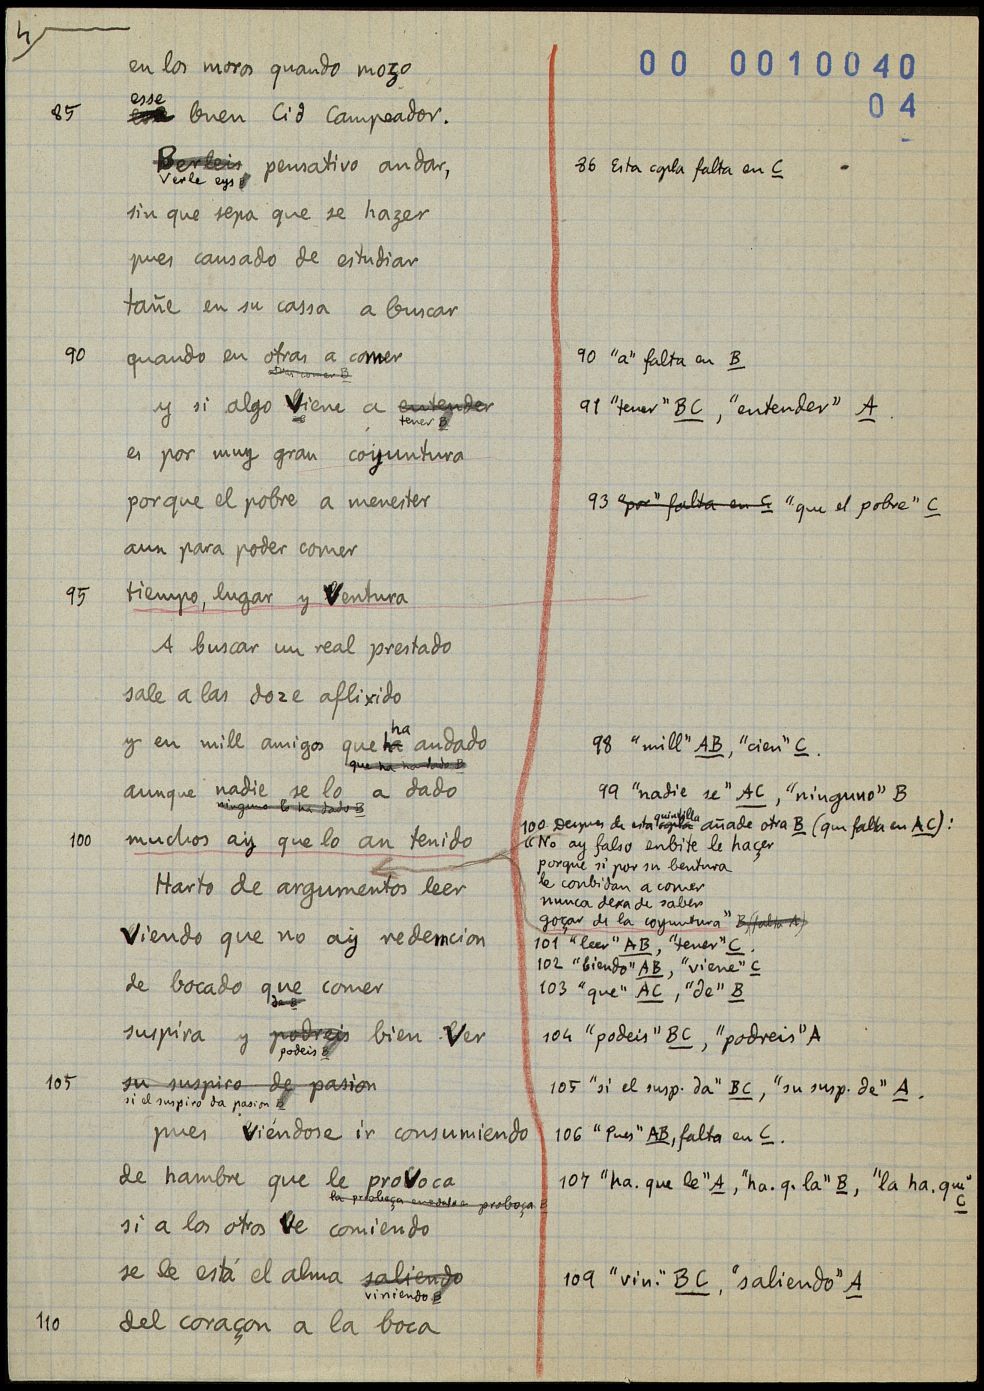 4
00 0010040
04
en los moros quando mozo
esse
85 buen Cid Campeador.
Berleis pensativo andar,
Verle eys B
86 Esta copla falta en C
sin que sepa que se hazer
pues causado de estudiar
tañe en su cassa a buscar
90 quando en otras a comer
otras comer B
90 "a" falta en B
y si algo Viene a entender
tener B
91 "tener" BC, "entender" A
es por muy gran coyuntura
porque el pobre a menester
93 "por" falta en C "que el pobre" C
aun para poder comer
95 tiempo, lugar y Ventura
A buscar un real prestado
sale a las doze aflixido
ha
y en mill amigos que ha andado
que ha ha dado B
98 "mill" AB, "cien" C.
aunque nadie se lo a dado
ninguno lo ha dado B
99 "nadie se" AC, "ninguno" B
100 muchos ay que lo an tenido
quintilla
100 Despues de esta copla añade otra B (que falta en AC):
"No ay falso enbite le haçer
porque si por su bentura
le conbidan a comer
nunca dexa de saber
goçar de la coyuntura" B (falta A)
Harto de argumentos leer
101 "leer" AB, "tener" C.
Viendo que no ay redemcion
102 "biendo" AB, "viene" C
de bocado que comer
de B
103 "que" AC, "de" B
suspira y podreis bien Ver
podeis B
104 "podeis" BC, "podreis" A
105 su suspiro de pasion
si el suspiro da pasion B
105 "si el susp. da" BC, "su susp. de" A.
pues Viéndose ir consumiendo
106 "Pues" AB, falta en C.
de hambre que le proVoca
la probeça proboça B
107 "ha. que le" A, "ha. q. la" B, "la ha. que" C
si a los otros Ve comiendo
se le está el alma saliendo
viniendo B
109 "vin." BC, "saliendo" A
110 del coraçon a la boca